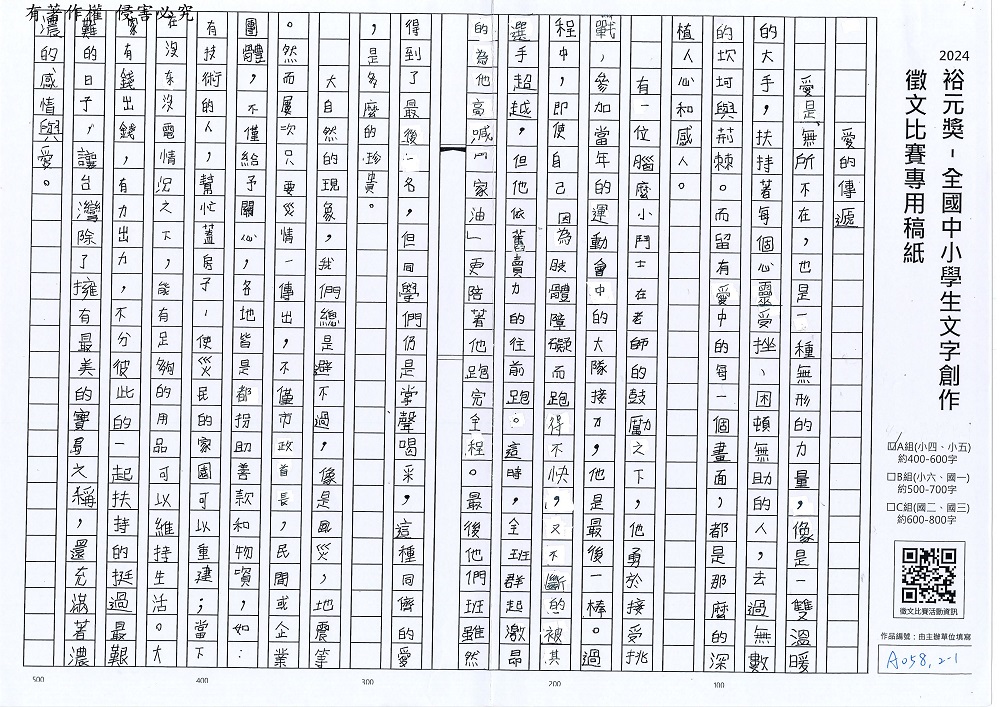 有著作權 侵害必究
2024
裕元獎-全國中小學生文字創作
徵文比賽專用稿紙
☑A組(小四、小五)
約400-600字
□B組(小六、國一)
約500-700字
□C組(國二、國三)
約600-800字
徵文比賽活動資訊
作品編號：由主辦單位填寫
A058,2-1
愛的傳遞
愛是無所不在，也是一種無形的力量，像是一雙溫暖
的大手，扶持著每個心靈受挫、困頓無助的人，去過無數
的坎坷與荊棘。而留有愛中的每一個畫面，都是那麼的深
植人心和感人。
有一位腦麼小鬥士在老師的鼓勵之下，他勇於接受挑
戰，參加當年的運動會中的大隊接力，他是最後一棒。過
程中，即使自己因為肢體障礙而跑得不快，又不斷的被其
選手超越，但他依舊賣力的往前跑。這時，全班群起激昂
的為他高喊「家油」更陪著他跑完全程。最後他們班雖然
得到了最後一名，但同學們仍是掌聲喝采，這種同儕的愛
，是多麼的珍貴。
大自然的現象，我們總是避不過，像是風災，地震等
。然而屢次只要災情一傳出，不僅市政首長，民間或企業
團體，不僅給予關心，各地皆是都扮助善款和物，如：
有技術的人，幫忙蓋房子、使災民的家園可以重建；當下
在沒水沒電情況之下，能有足夠的用品可以維持生活。大
家有錢出錢，有力出力，不分彼此的一起扶持的挺過最艱
難的日子，讓台灣除了擁有最美的寶島之稱，還充滿著濃
濃的感情與愛。
100
200
300
400
500